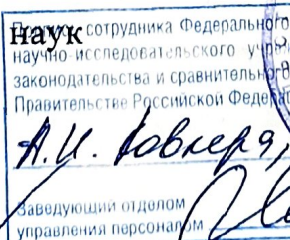 наук
сотрудника Федерального
научно-исследовательского
законодательства и сравнительного
Правительстве Российской
А.И. Ковлера,
Заведующий отделом
управления персоналом